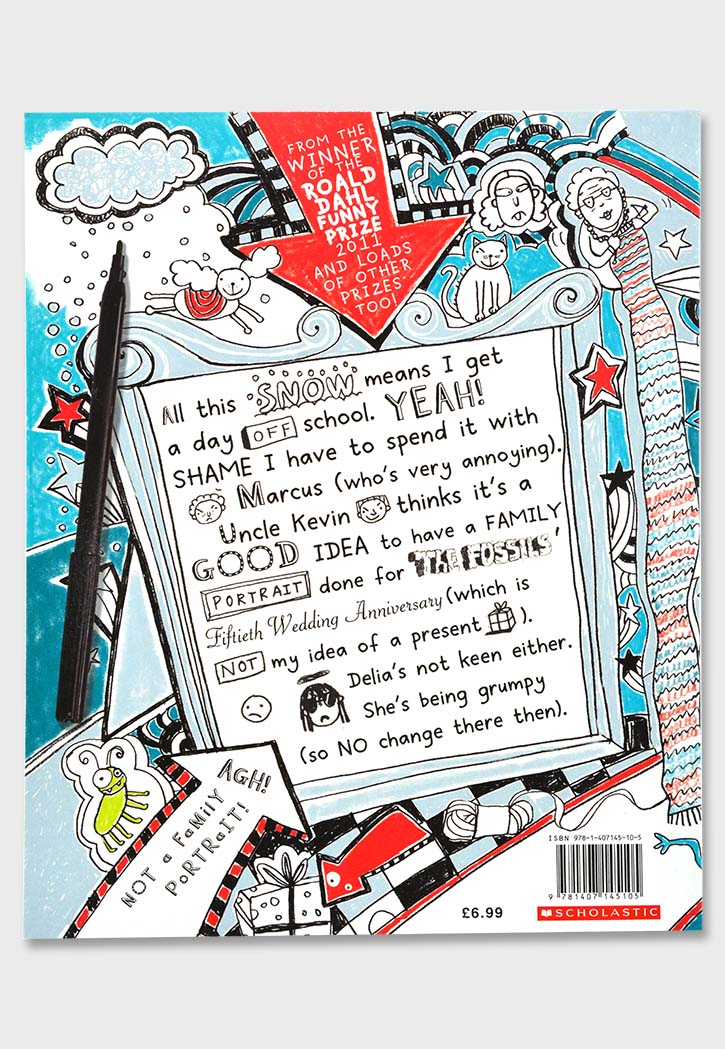 FROM THE
WINNER
OF THE
ROALD
DAHL
FUNNY
PRIZE
2011
AND LOADS
OF OTHER
PRIZES
TOO!
All this SNOW means I get
a day OFF school. YEAH!
SHAME I have to spend it with
Marcus (who's very annoying).
Uncle Kevin thinks it's a
GOOD IDEA to have a FAMILY
PORTRAIT done for 'THE FOSSILS'
Fiftieth Wedding Anniversary (which is
NOT my idea of a present).
Delia's not keen either.
She's being grumpy
(so NO change there then).
AGH!
NOT a FaMily
PoRTRaiT!
ISBN 978-1-407145-10-5
9 781407 145105
£6.99
SCHOLASTIC